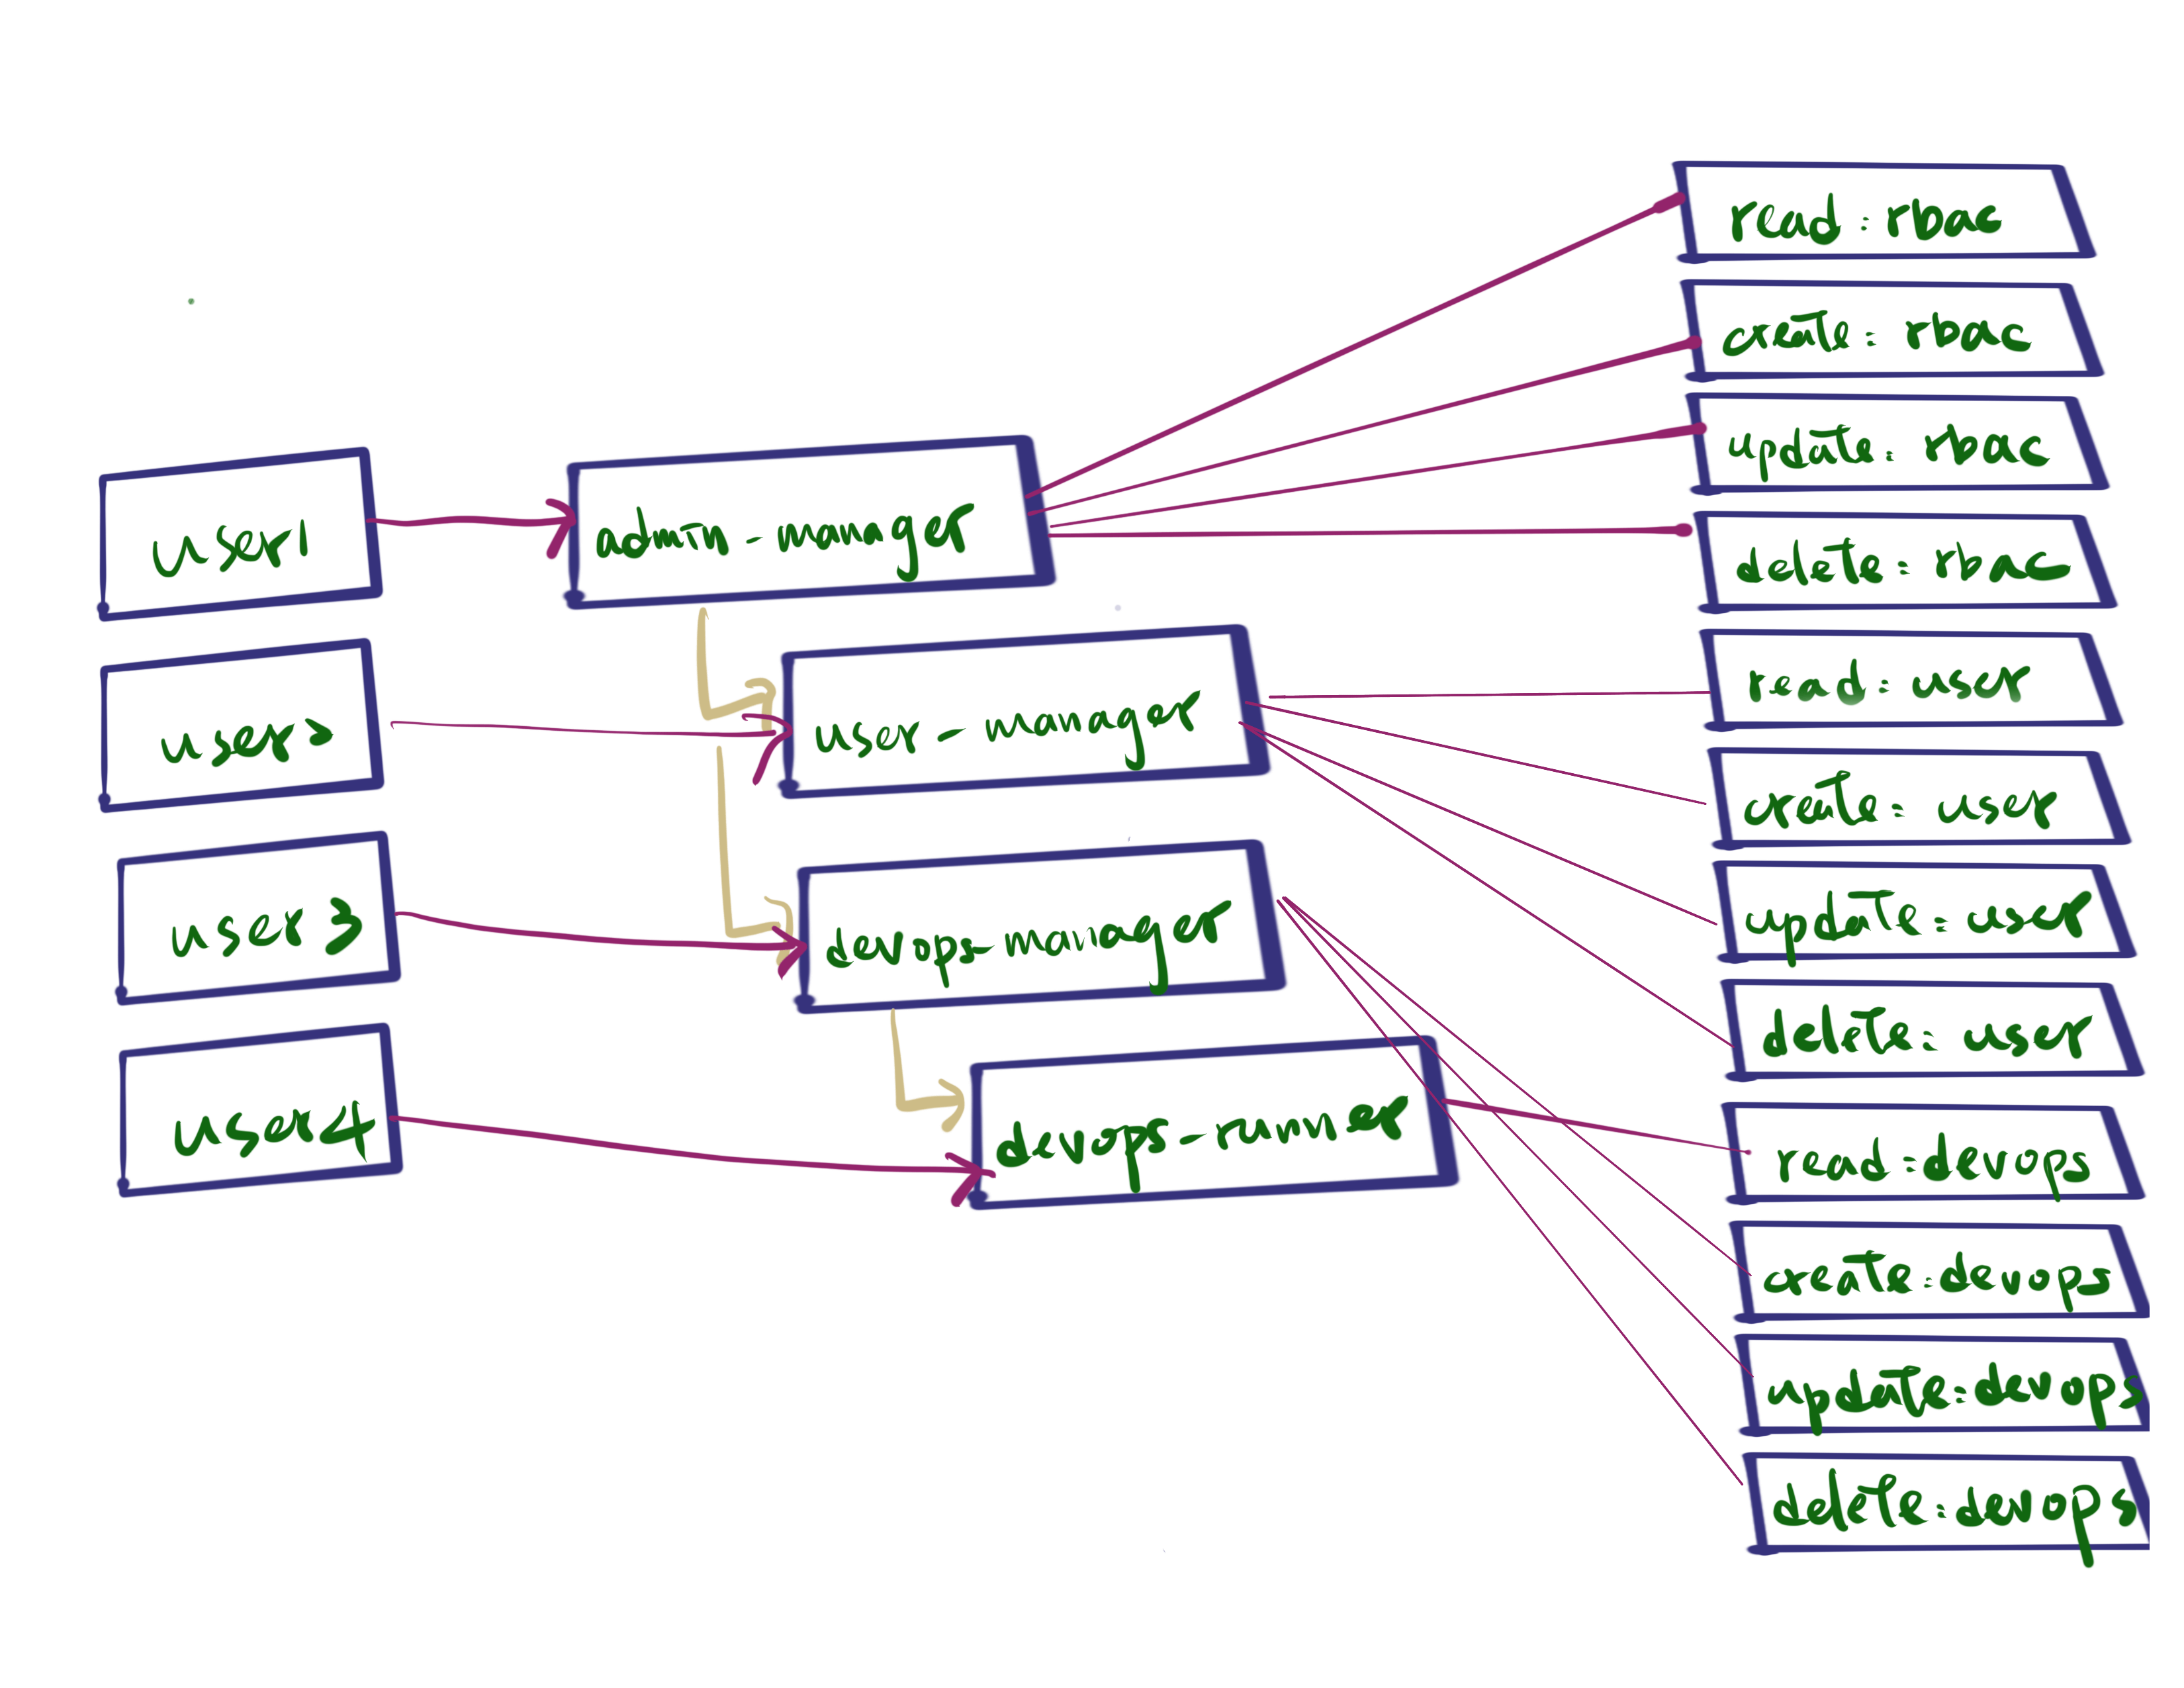 user1
user2
user3
user4
admin-manager
user-manager
devops-manager
devops-runner
read: rbac
create: rbac
update: rbac
delete: rbac
read: user
create: user
update: user
delete: user
read:devops
create:devops
update:devops
delete:devops